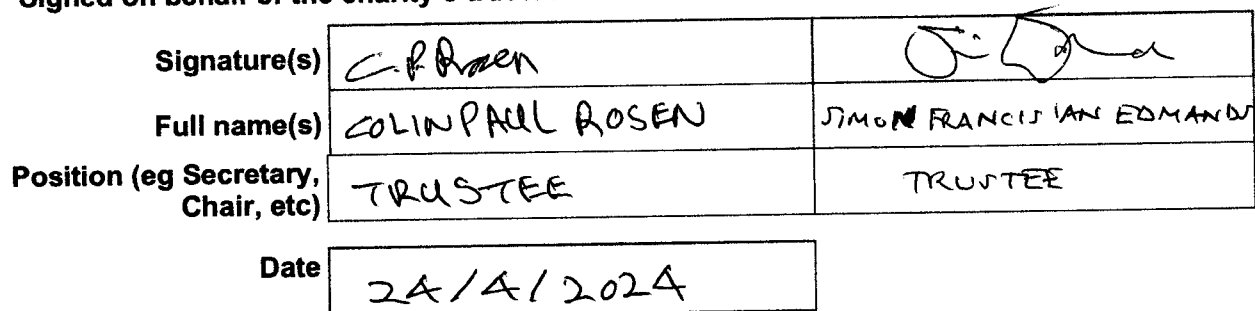 Signed on behalf of the charity's
Signature(s) C.P. Rosen
Full name(s) COLIN PAUL ROSEN SIMON FRANCIS IAN EDMANDS
Position (eg Secretary, Chair, etc) TRUSTEE TRUSTEE
Date 24/4/2024